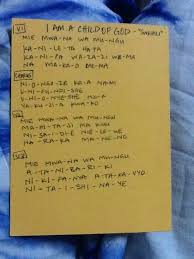 V1 I AM A CHILD OF GOD - "SWAHILI"
MIE MWA-NA WA MU-NGU
KA-NI-LE-TA HA-PA
KA-NI-PA WA-ZA-ZI WE-MA
NA MA-KA-O ME-MA
CHORUS
NI-O-NGO-ZE KA-A NAMI
U-NI-FU-NDI-SHE
YA-KU-WA KO
V2
MIE MWA-NA WA MU-NGU
MA-HI-TA-JI MA KUU
NI-SA-I-DI-E NE-LE-WE
NA-RA-KA MA-NE-NO
V3
MIE MWA-NA WA MU-NGU
A-TA-NI-BA-RI-KI
NI-KI-FA-NYA A-TA-KA-VYO
NI-TA-I-SHI-NA-YE